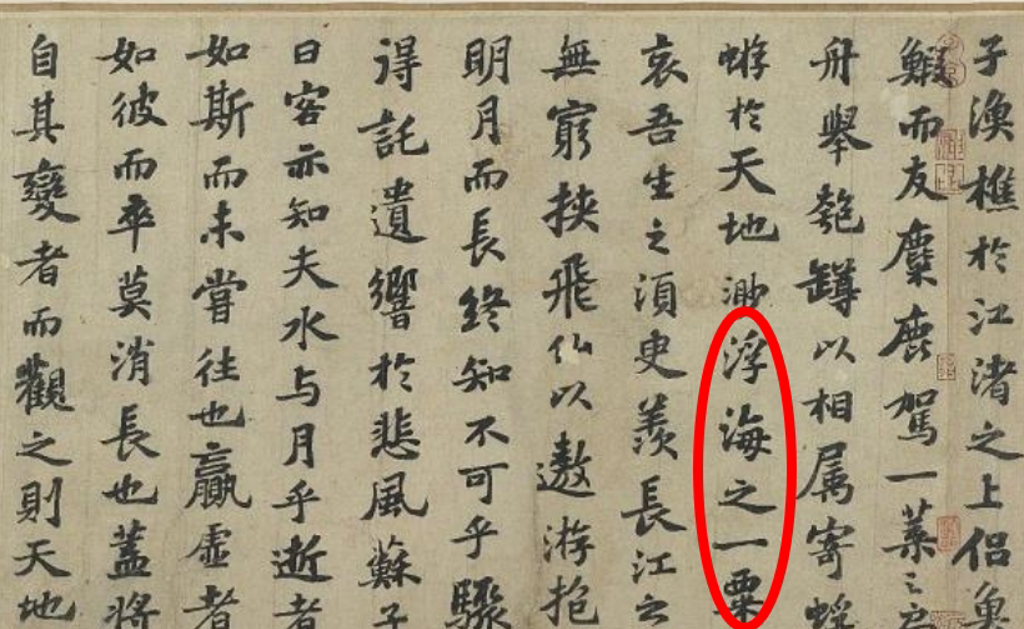 子渔樵於江渚之上侣魚
鰕而友麋鹿駕一葉之扁
舟舉匏罇以相属寄蜉
蝣於天地渺浮海之一粟
哀吾生之須臾羨長江之
無窮挾飛仙以遨游抱
明月而長終知不可乎驟
得託遺響於悲風蘇子
曰客亦知夫水与月乎逝者
如斯而未嘗往也贏虚者
如彼而卒莫消長也蓋將
自其變者而觀之則天地